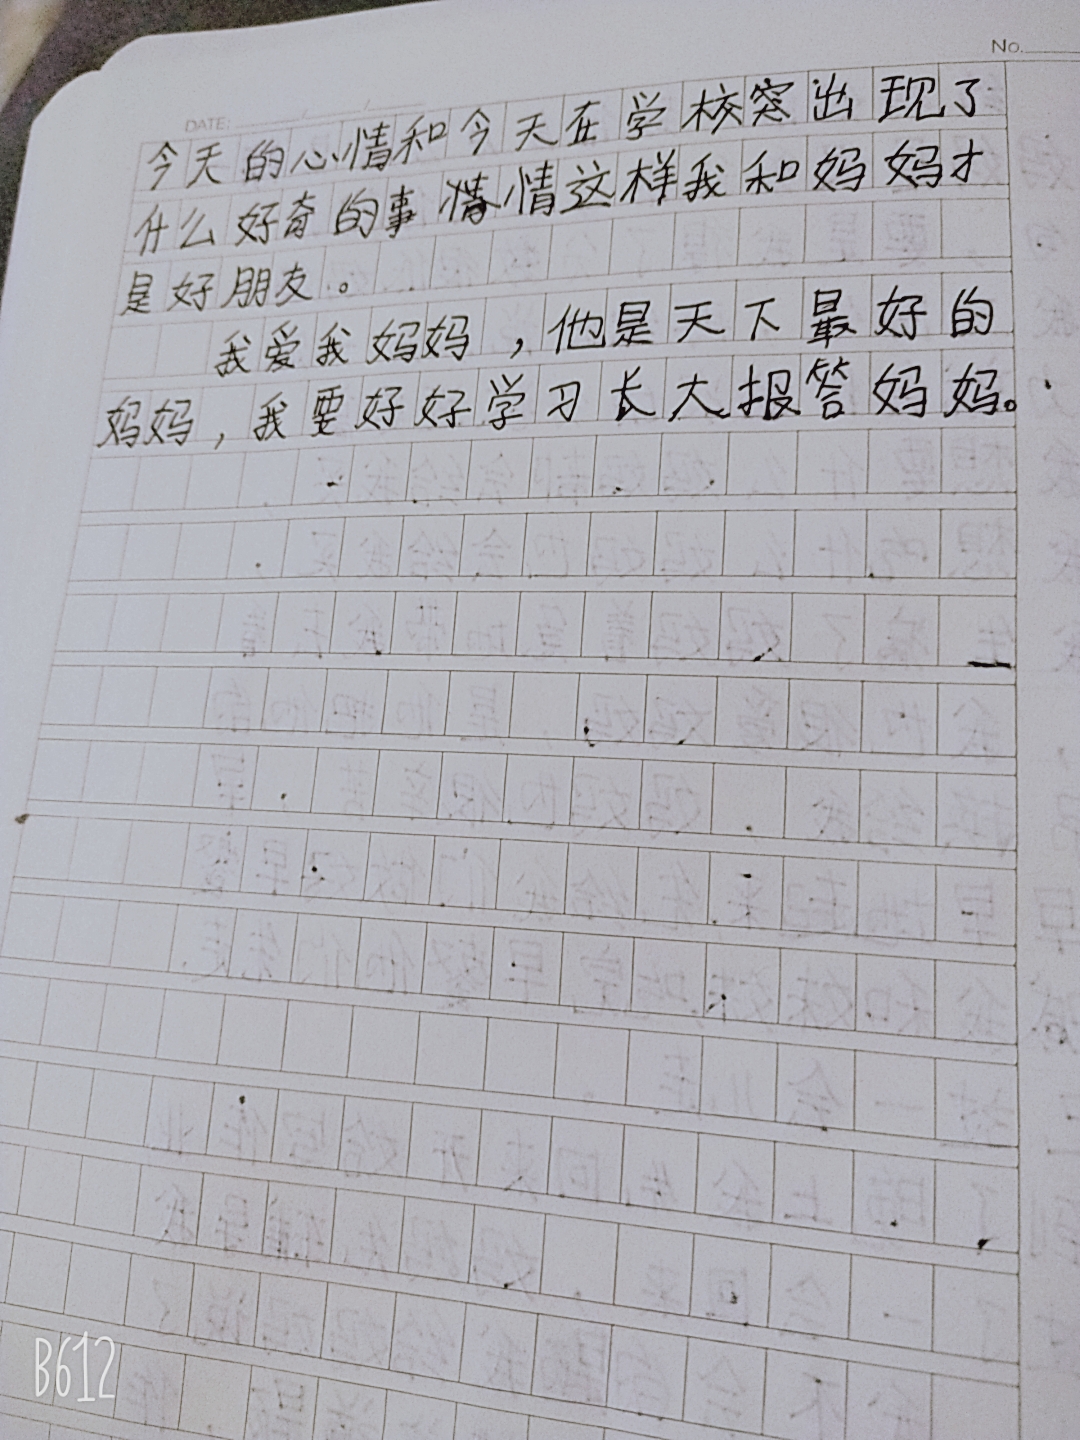 No.
DATE:
今天的心情和今天在学校突出现了
什么好奇的事情情这样我和妈妈才
是好朋友。
我爱我妈妈，他是天下最好的
妈妈，我要好好学习长大报答妈妈。
B612